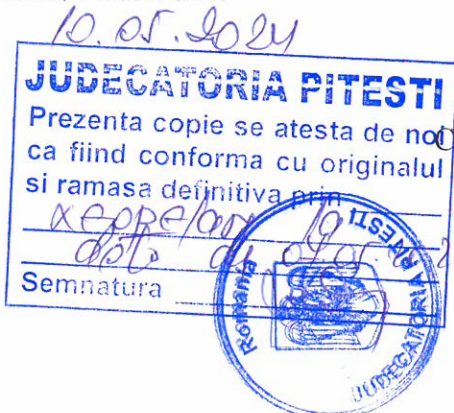 10.05.2024
JUDECATORIA PITESTI
Prezenta copie se atesta de noi
ca fiind conforma cu originalul
si ramasa definitiva prin
la
data de 09.05
Semnatura
Romania
JUDECATORIA PITESTI